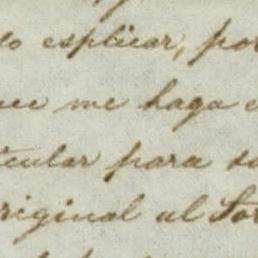 do esplicar, por
me haga
ticular para
original al Sor